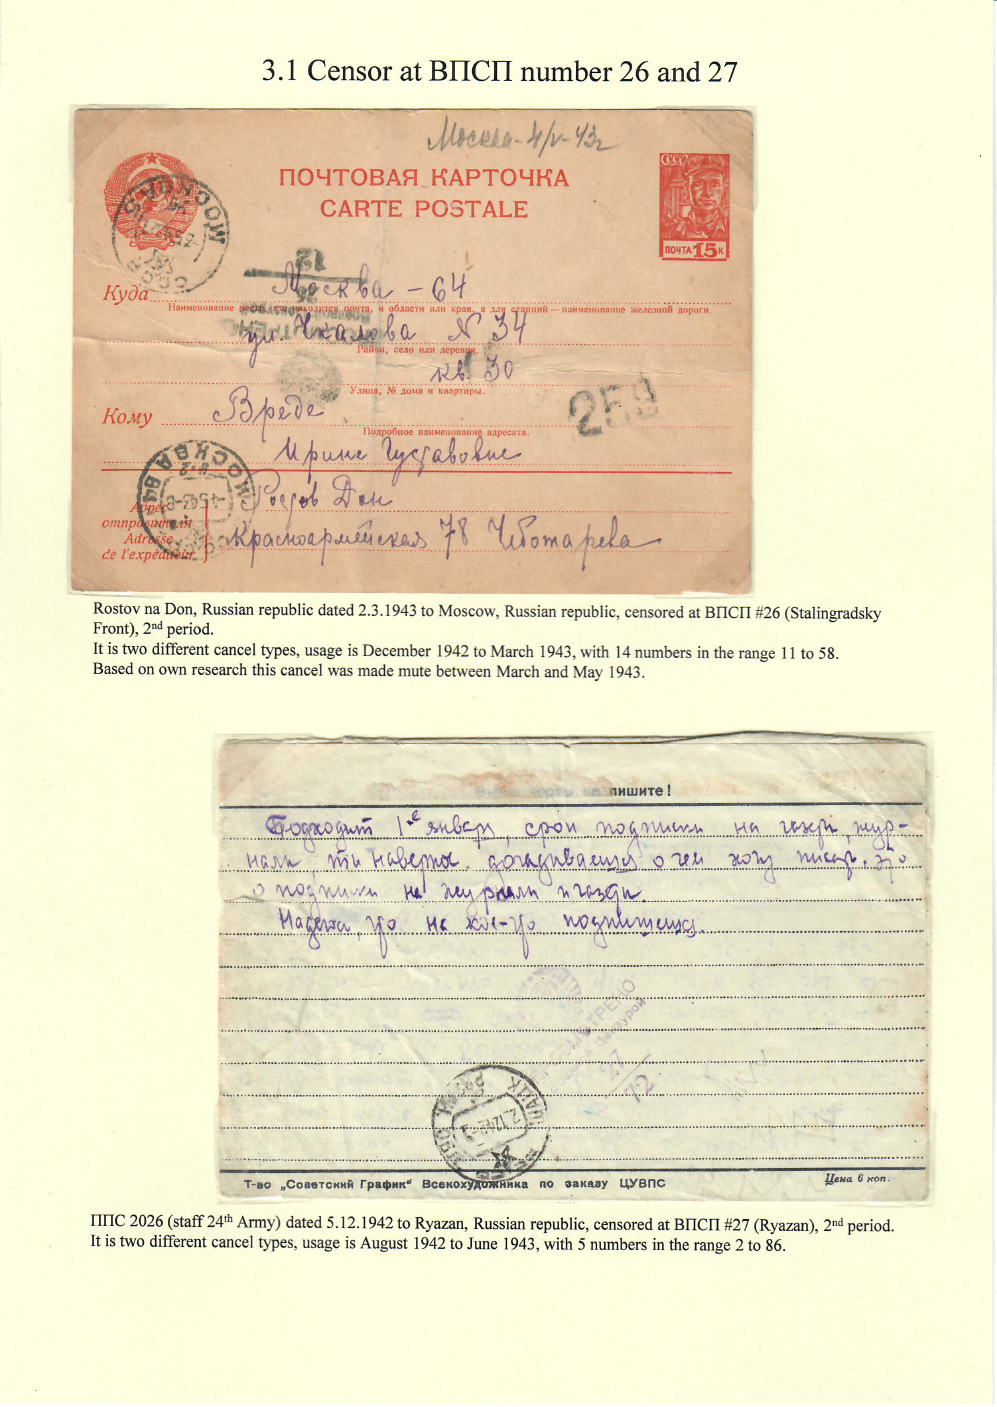 3.1 Censor at ВПСП number 26 and 27
Москва - 4/V-43г
ПОЧТОВАЯ КАРТОЧКА
CARTE POSTALE
СССР
ПОЧТА 15 К
МОСКВА
СССР
12
26
Куда Москва - 64
Наименование места, где находится почта, и области или края, а для станций — наименование железной дороги
ул. Чкалова № 34
Район, село или деревня.
кв. 30
Улица, № дома и квартиры.
259
Кому Вреде
Подробное наименование адресата.
Ирине Густавовне
МОСКВА
-4.5.43-8
Адрес отправителя
Adresse de l'expéditeur
Ростов Дон
Красноармейская 78 Чеботарева
Rostov na Don, Russian republic dated 2.3.1943 to Moscow, Russian republic, censored at ВПСП #26 (Stalingradsky
Front), 2nd period.
It is two different cancel types, usage is December 1942 to March 1943, with 14 numbers in the range 11 to 58.
Based on own research this cancel was made mute between March and May 1943.
пишите!
Подходит 1е января, срок подписки на газеты, жур-
налы, ты наверно догадываешься о чем хочу писать, это
о подписки на журналы и газеты.
Надежа, что на кое-что подпишешься.
ПРОСМОТРЕНО
Цензурой
27
72
Т-во „Советский График“ Всекохудожника по заказу ЦУВПС
Цена 6 коп.
ППС 2026 (staff 24th Army) dated 5.12.1942 to Ryazan, Russian republic, censored at ВПСП #27 (Ryazan), 2nd period.
It is two different cancel types, usage is August 1942 to June 1943, with 5 numbers in the range 2 to 86.